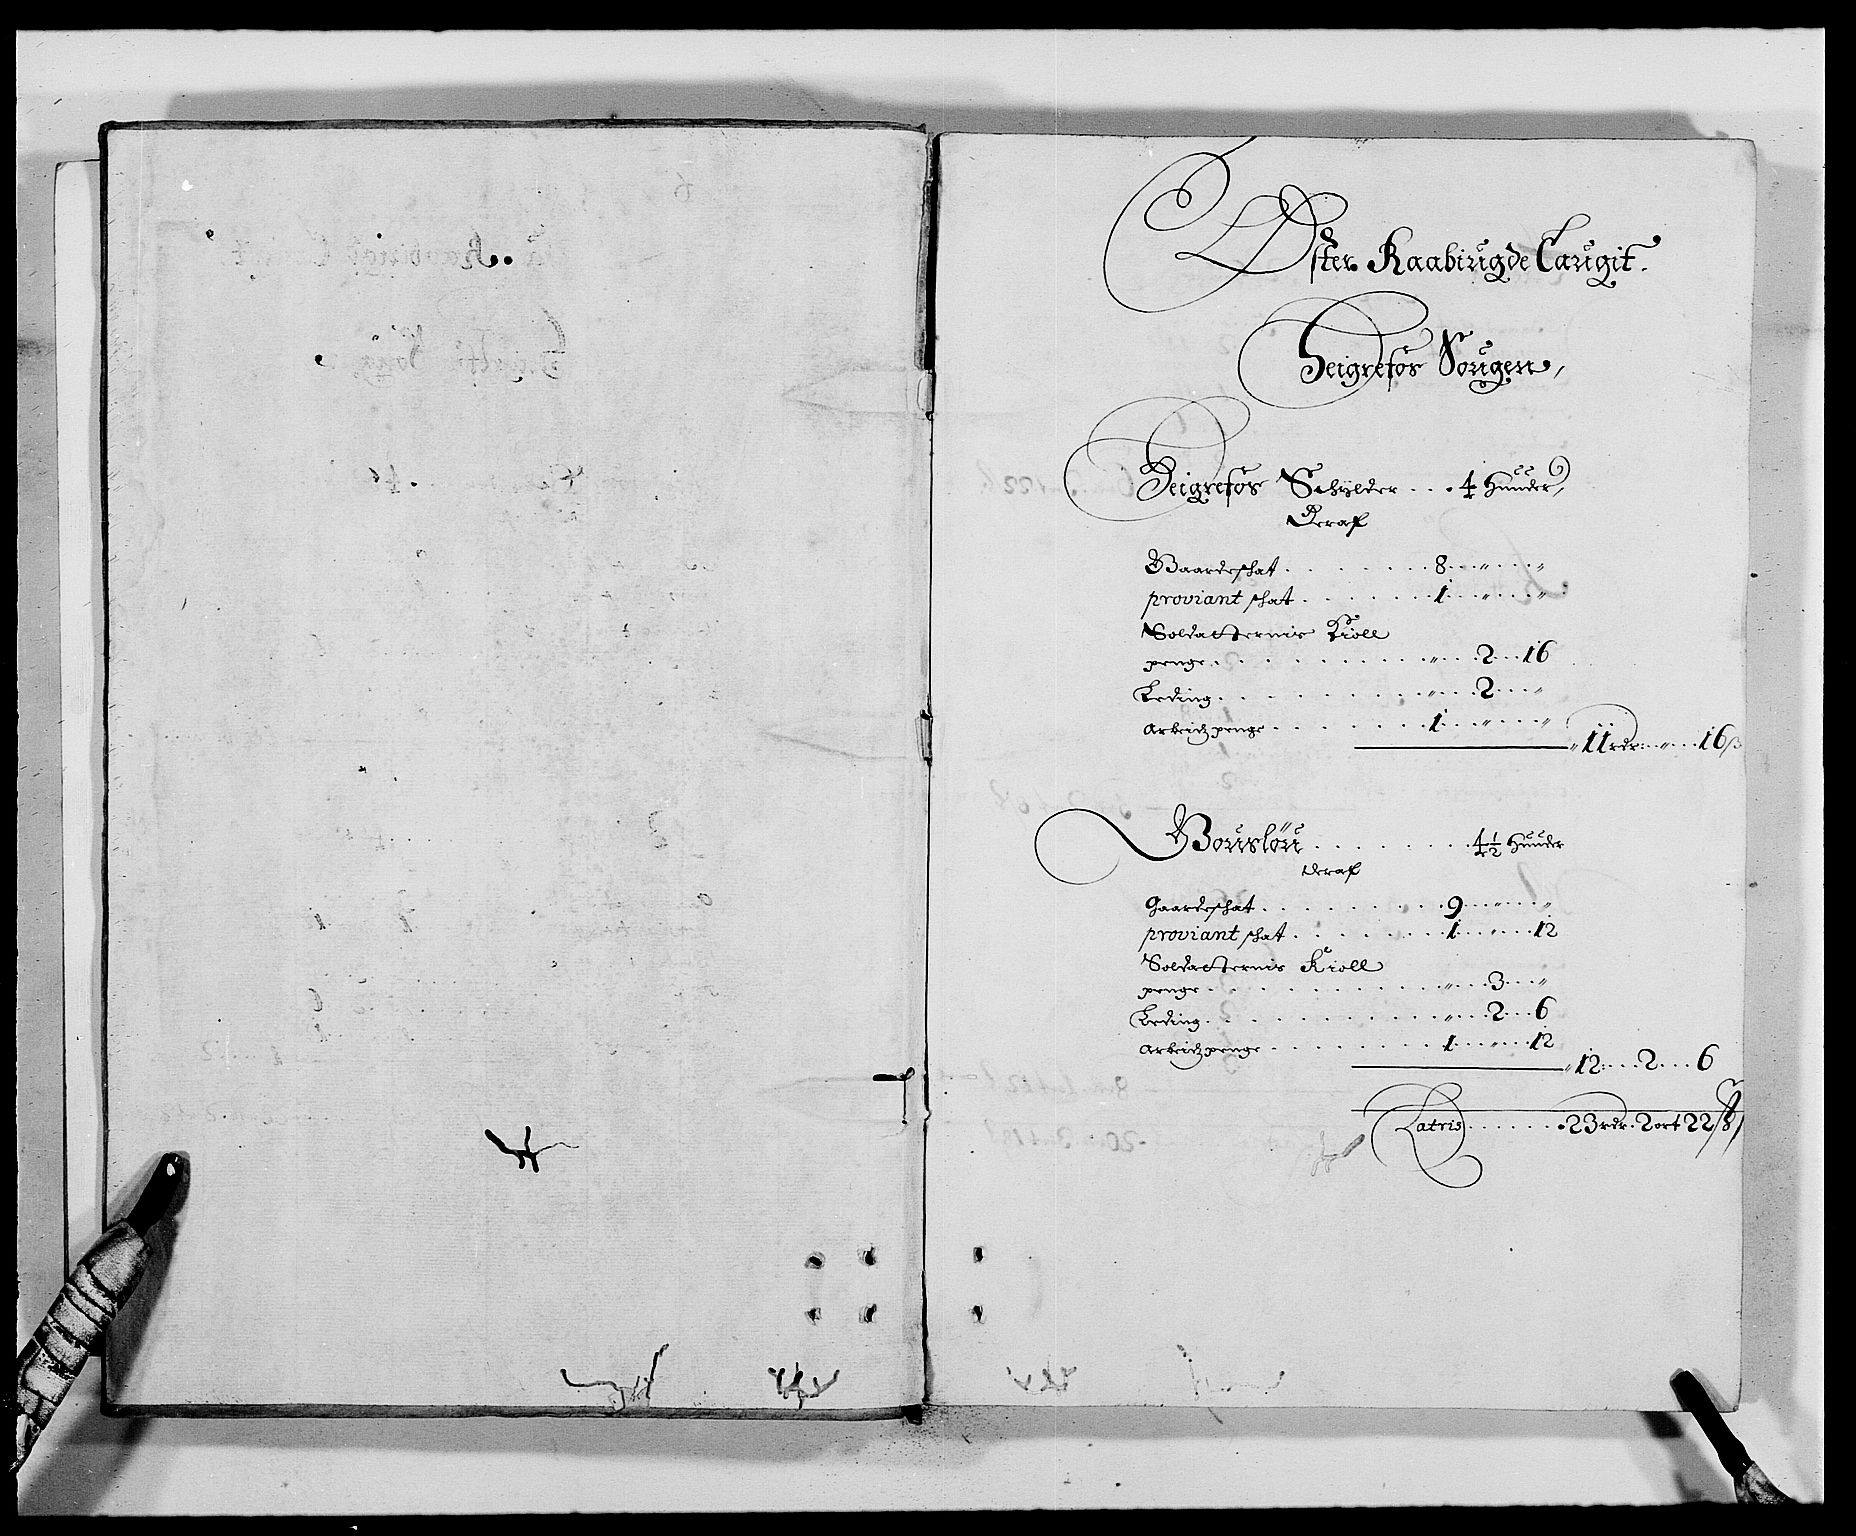 Øster Raabiugde Laugit.
Heigrefos Sougen,
Heigrefos Schylder . . . 4 Huuder,
Deraf
Gaardeschat . . . . . . . 8 . . „ . . „
proviant schat . . . . . . 1 . . „ . . „
Soldatternis Kioll
penge . . . . . . . . . „ . . 2 . . 16
Leding . . . . . . . . „ . . 2 . . „
Arbeidzpenge . . . . . . . 1 . . „ . . „
11 rdr . . „ . . 16 β
Bouslöu . . . . . . . . 4½ Huuder
deraf
Gaardeschat . . . . . . . . 9 . . „ . . „
proviant schat . . . . . . . 1 . . „ . . 12
Soldatternis Kioll
penge . . . . . . . . . „ . . 3 . . „
Leding . . . . . . . . . „ . . 2 . . 6
Arbeidzpenge . . . . . . . 1 . . „ . . 12
12 . . . 2 . . . 6
Latris . . . . . . 23 rdr . 2 ort 22 β